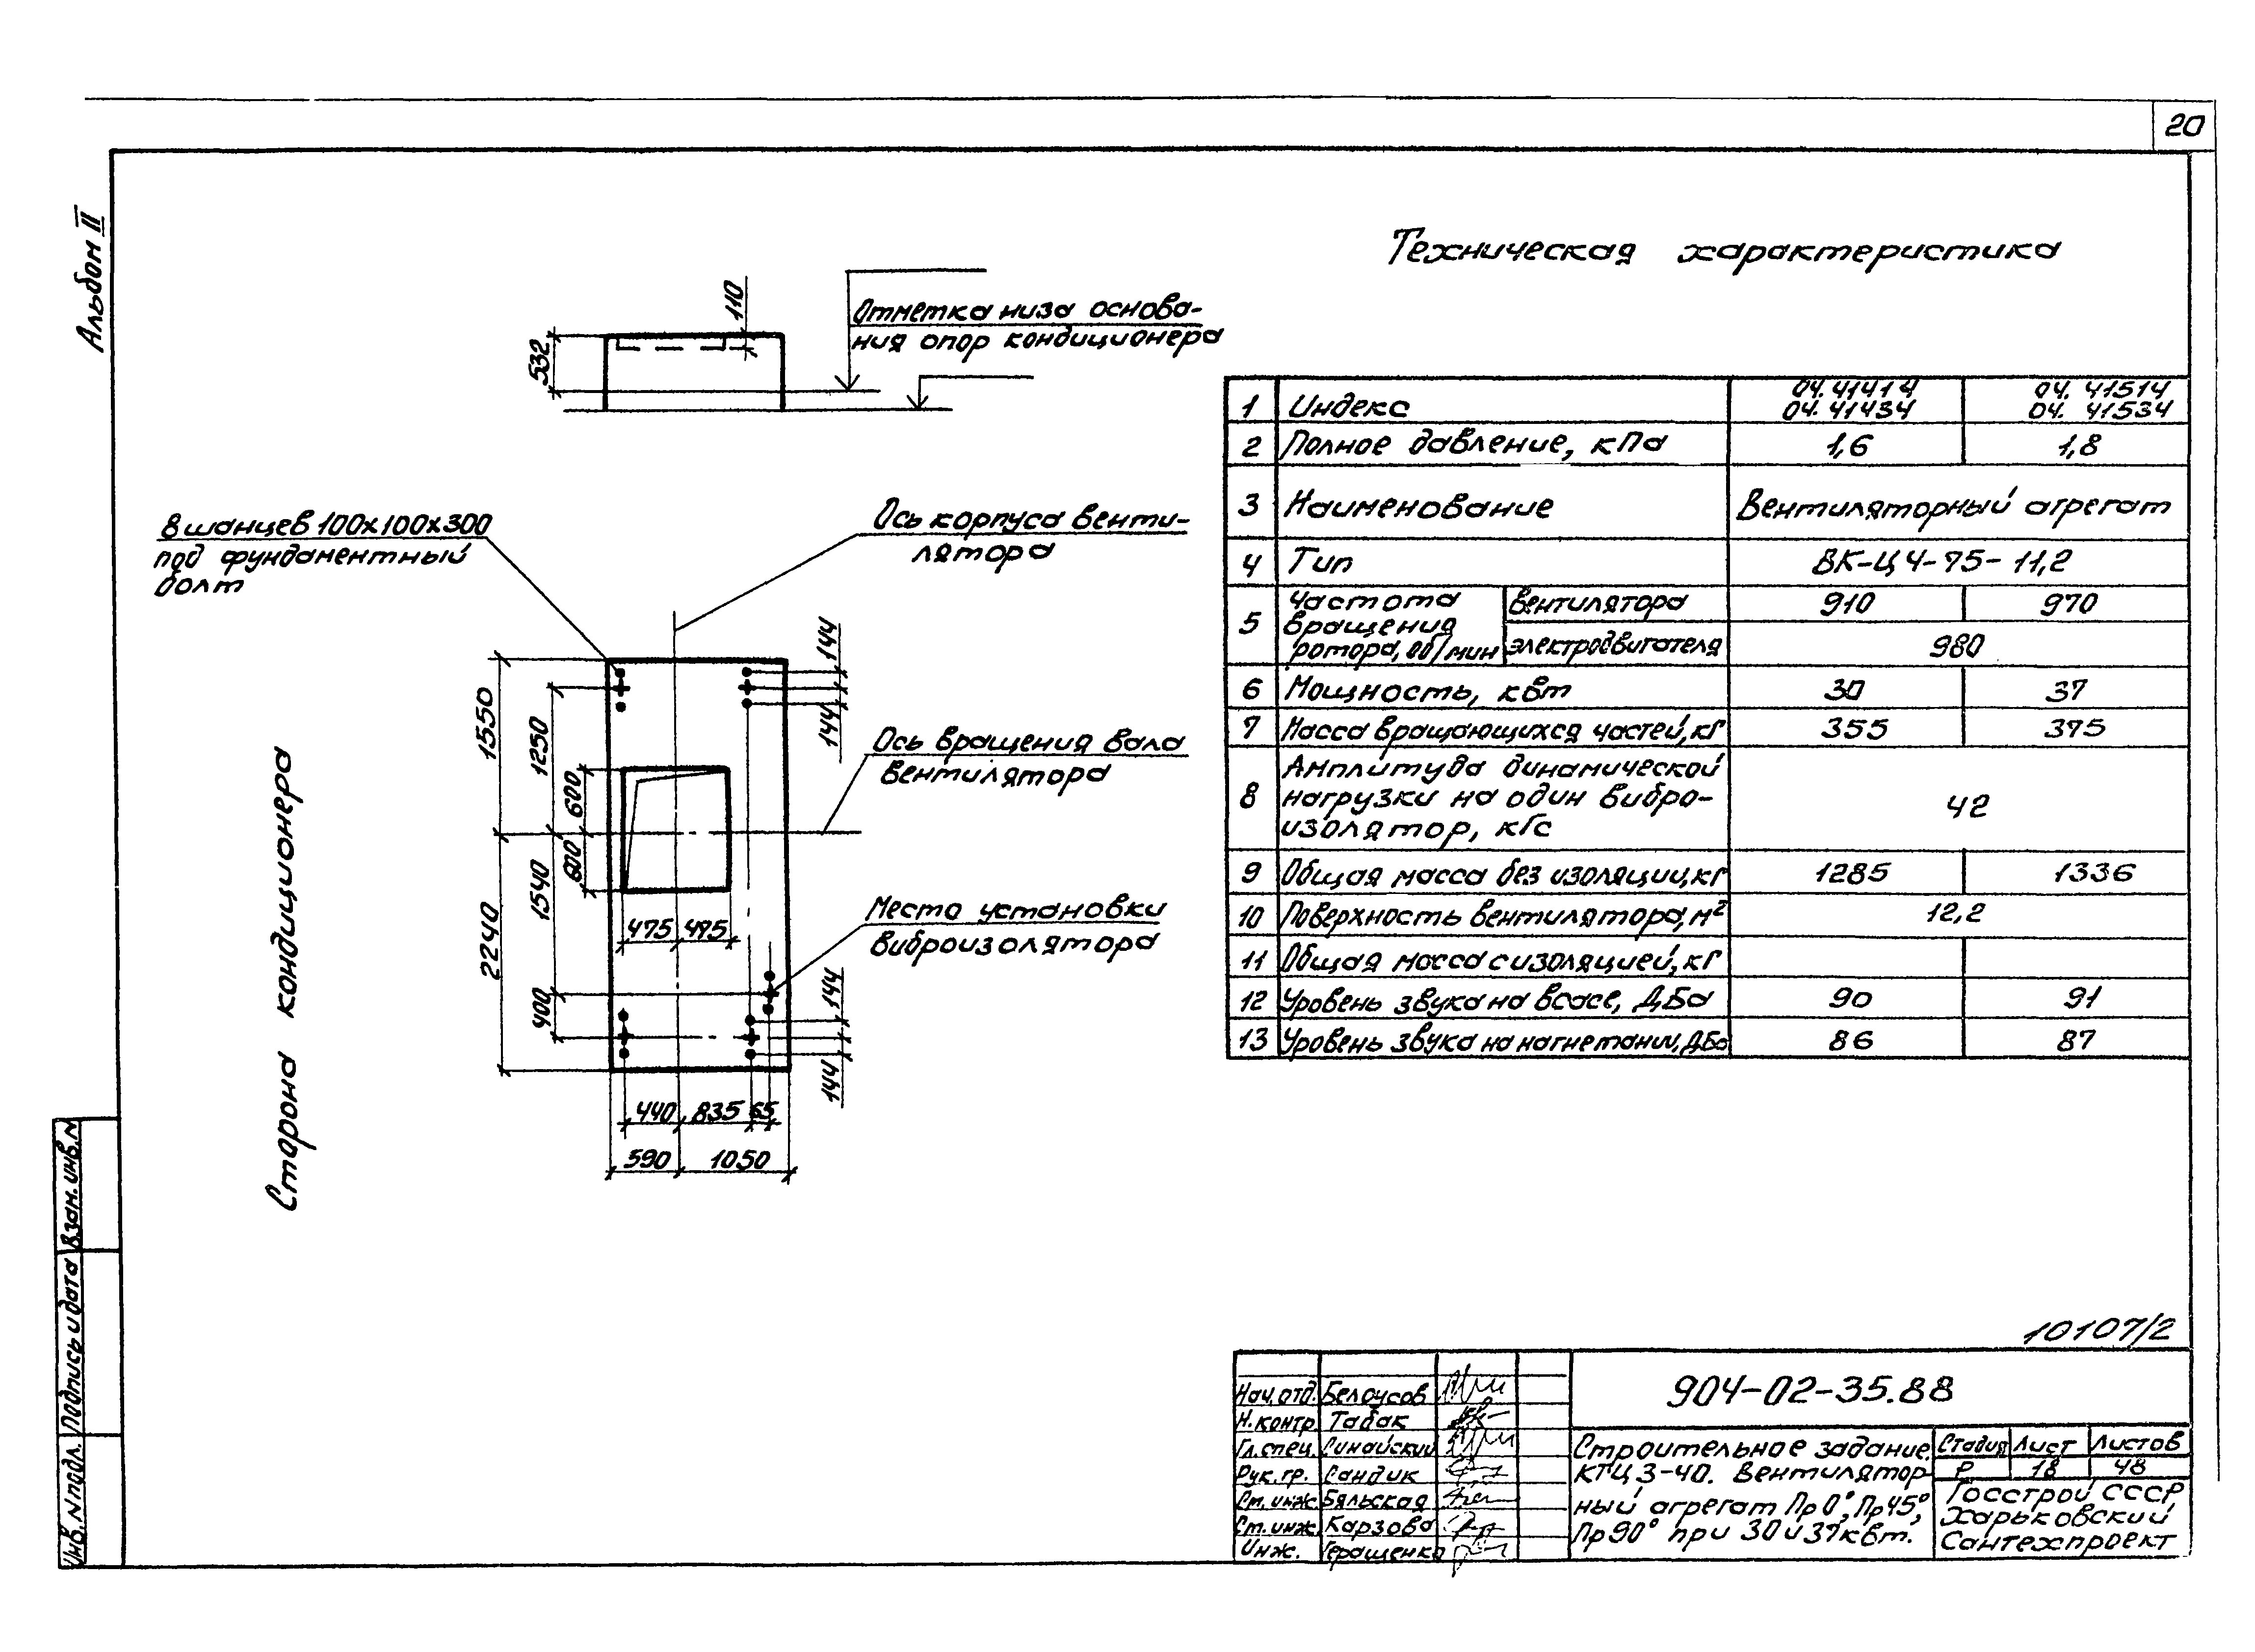 20
Альбом II
Техническая характеристика
110
532
Отметка низа основа-
ния опор кондиционера
8 шанцев 100x100x300
под фундаментный
болт
Ось корпуса венти-
лятора
144
144
1550
1250
600
Ось вращения вала
вентилятора
Сторона кондиционера
600
2240
1540
475 495
Место установки
виброизолятора
400
144
144
440 835 65
590 1050
1 Индекс 04.41414 04. 41514
04.41434 04. 41534
2 Полное давление, кПа 1,6 1,8
3 Наименование Вентиляторный агрегат
4 Тип ВК-Ц4-75-11,2
5 Частота вентилятора 910 970
вращения
ротора, об/мин электродвигателя 980
6 Мощность, квт 30 37
7 Масса вращающихся частей, кГ 355 375
8 Амплитуда динамической
нагрузки на один вибро- 42
изолятор, кГс
9 Общая масса без изоляции, кГ 1285 1336
10 Поверхность вентилятора, м² 12,2
11 Общая масса с изоляцией, кГ
12 Уровень звука на всасе, ДБа 90 91
13 Уровень звука на нагнетании, ДБа 86 87
10107/2
904-02-35.88
Нач. отд. Белоусов
Н. контр. Табак
Гл. спец. Синайский
Рук. гр. Сандик
Ст. инж. Бяльская
Ст. инж. Карзова
Инж. Геращенко
Строительное задание.
КТЦ3-40. Вентилятор-
ный агрегат Пр0°, Пр45°,
Пр90° при 30 и 37 квт.
Стадия Лист Листов
Р 18 48
Госстрой СССР
Харьковский
Сантехпроект
Взам. инв. N
Подпись и дата
Инв. N подл.